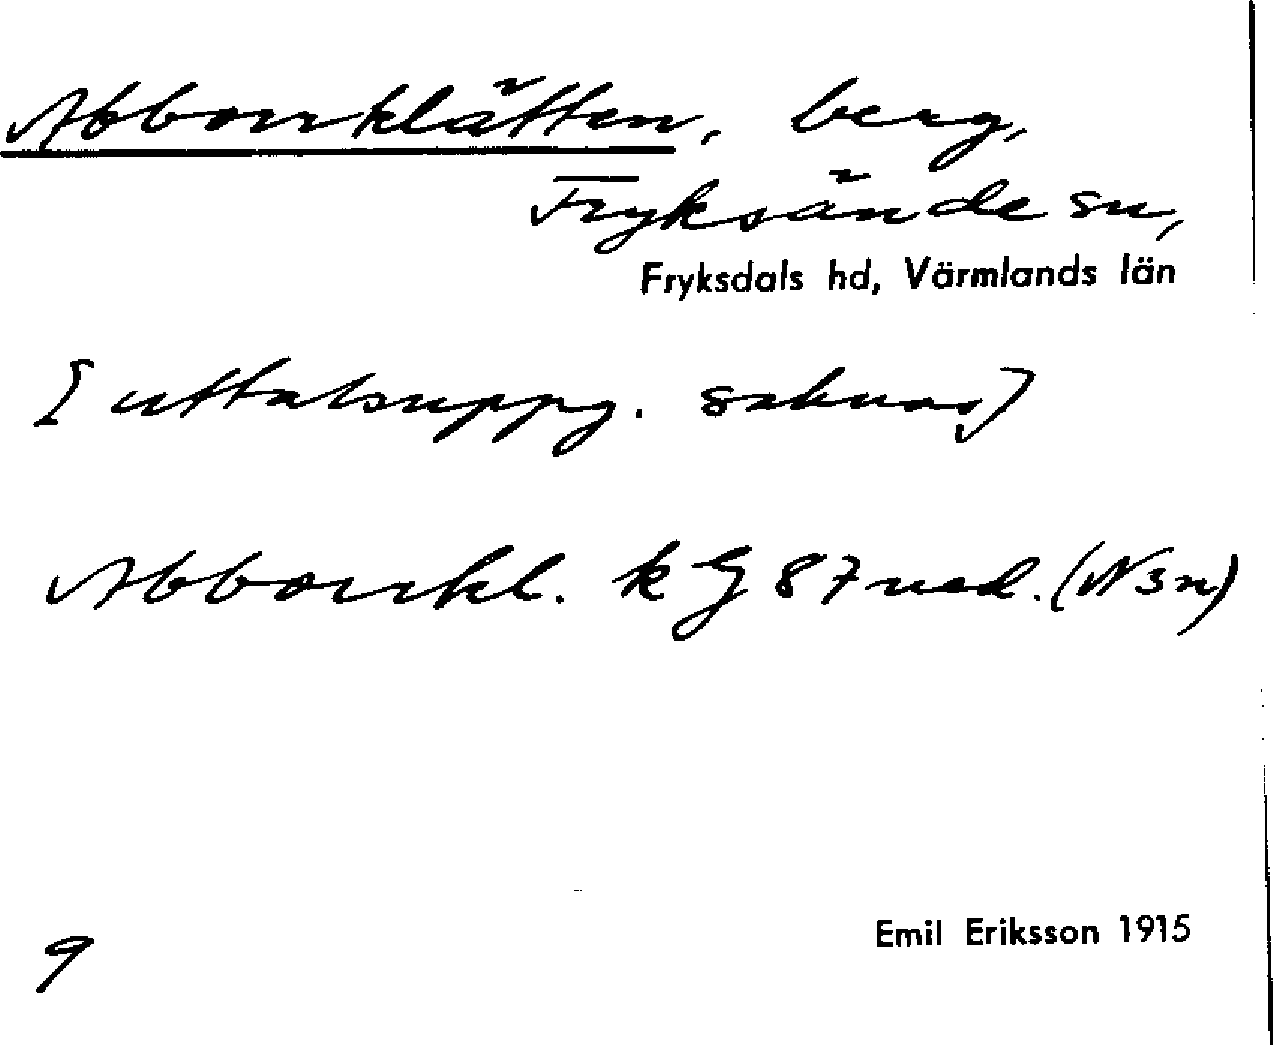 Abborrklätten, berg,
Fryksände sn,
Fryksdals hd, Värmlands län
[uttalsuppg. saknas]
Abborrkl. k G 87 ned. (N sn)
9
Emil Eriksson 1915